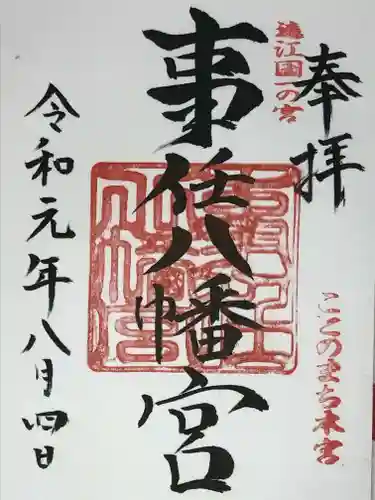 奉拝
遠江國一の宮
ことのまち本宮
事任八幡宮
令和元年八月四日